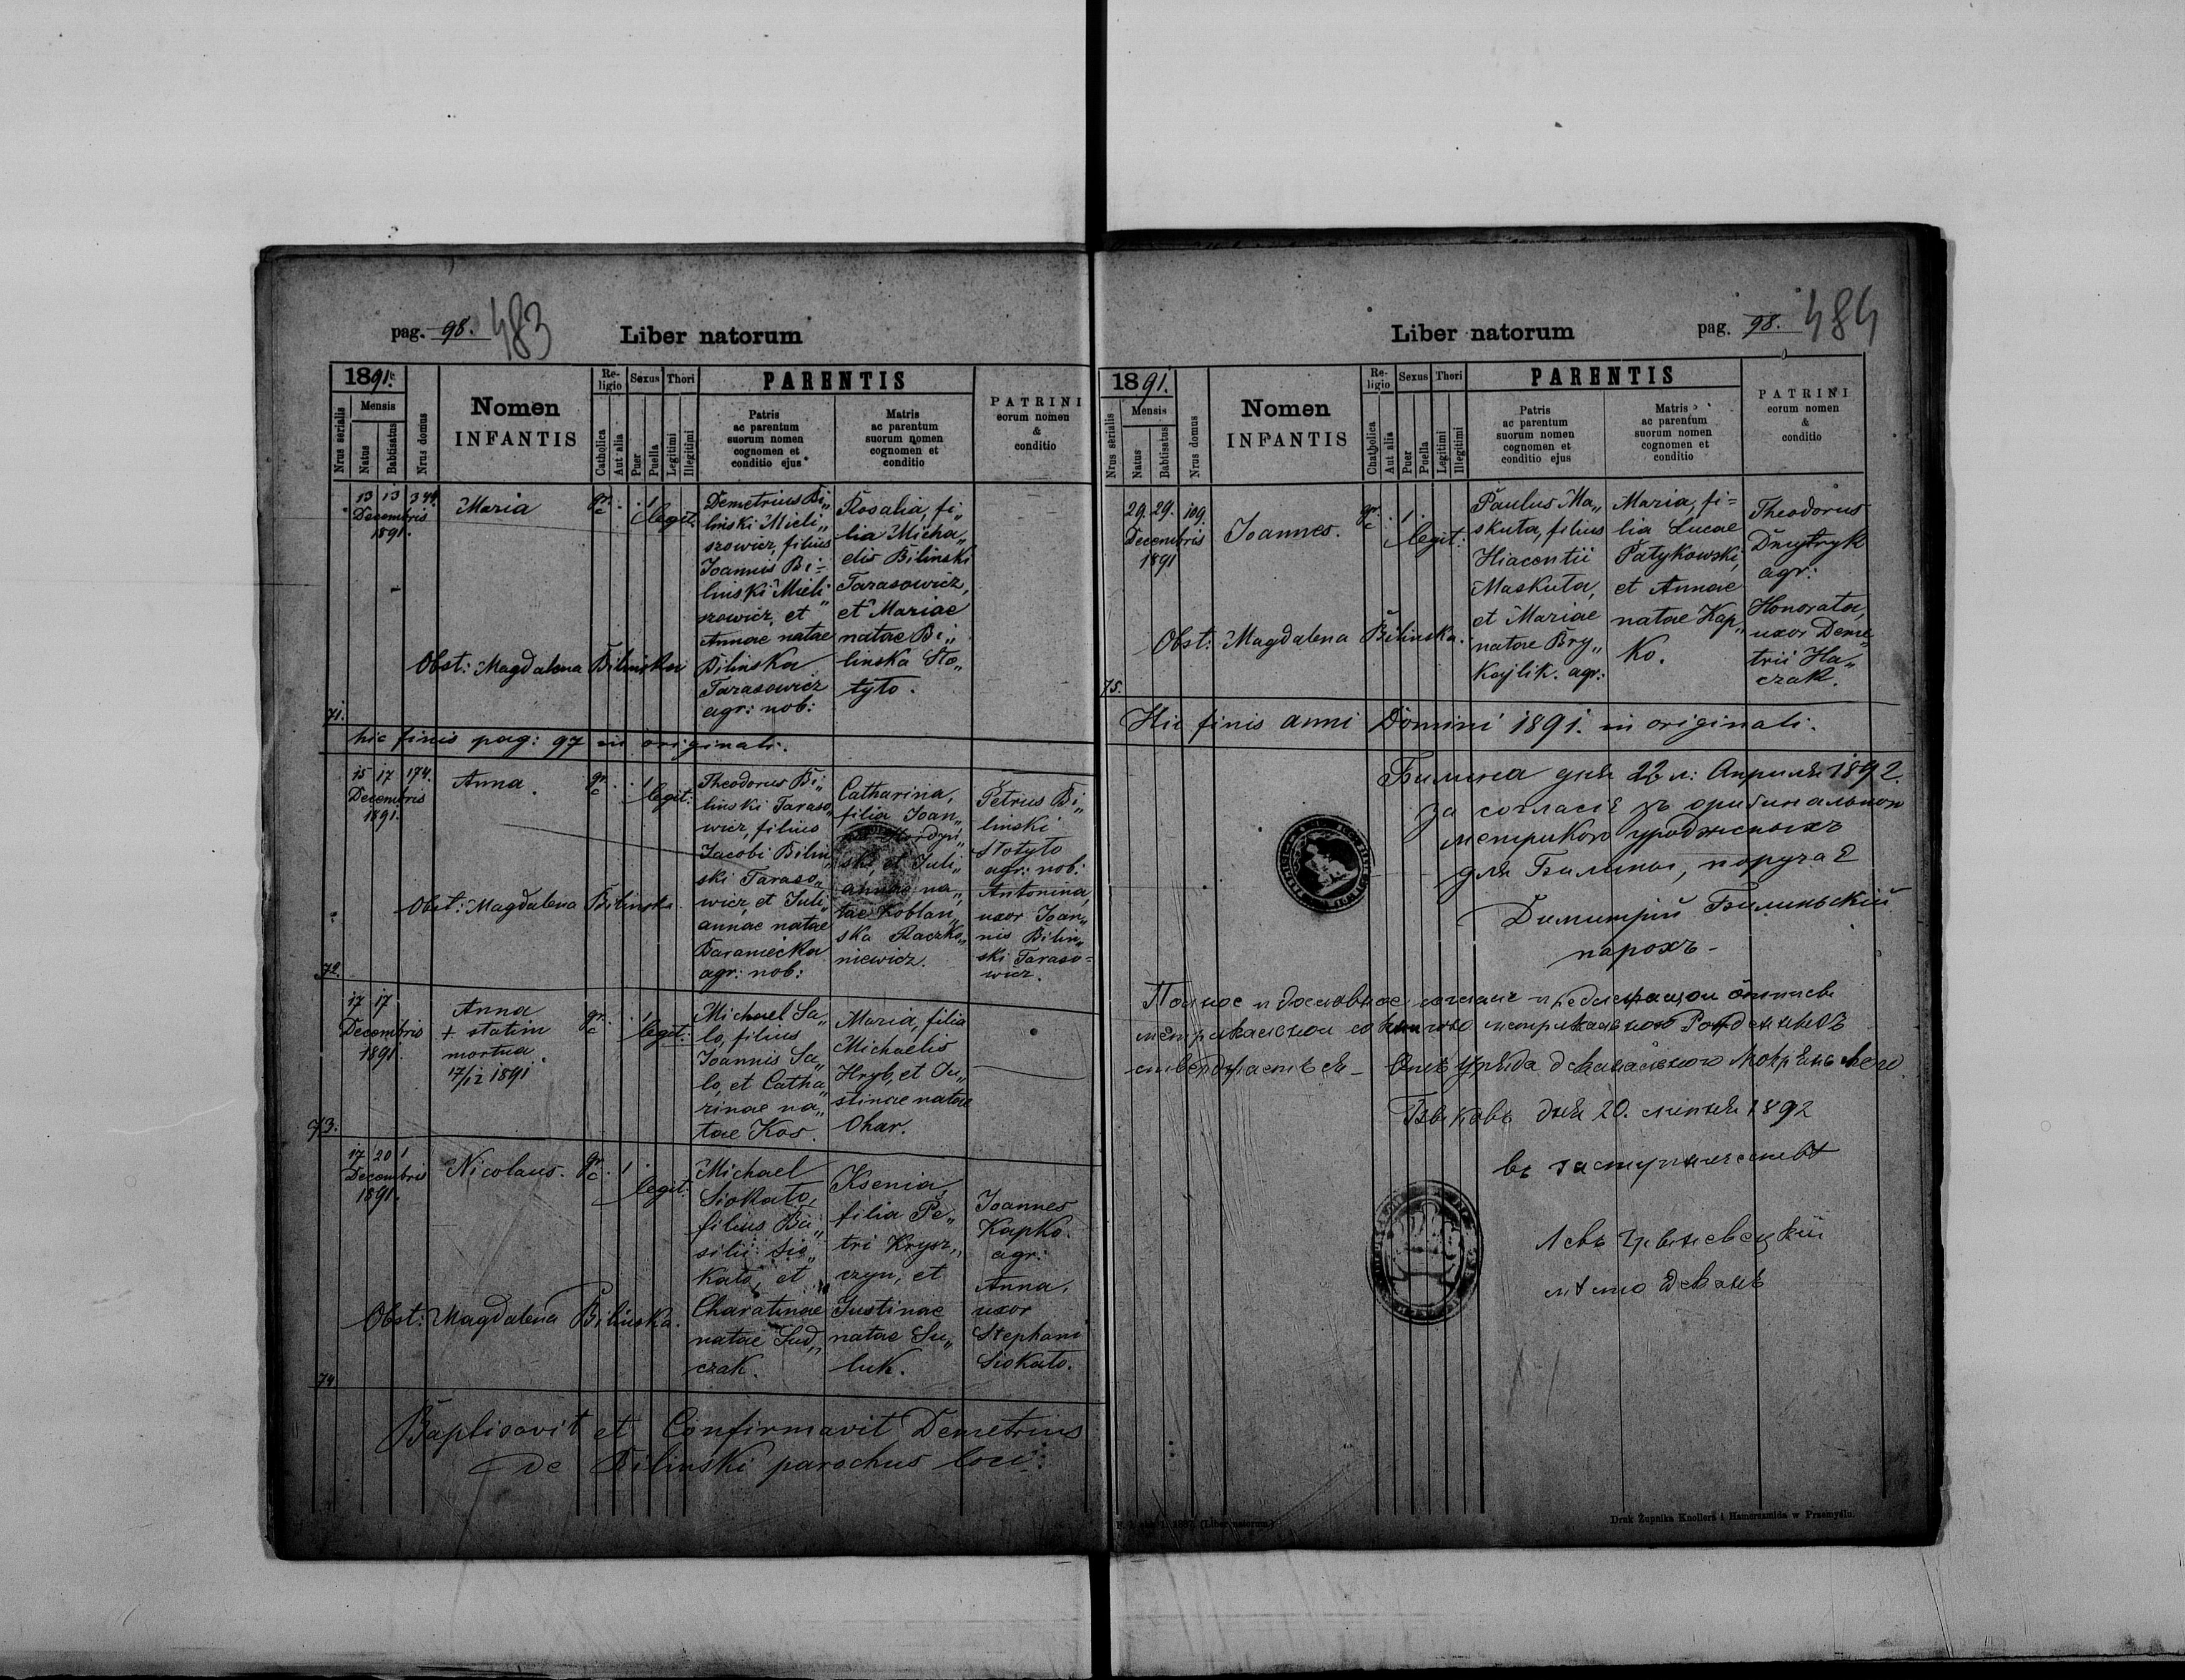 pag. 98. 483
Liber natorum
1891.
Nrus serialis
Mensis
Natus
Babtisatus
Nrus domus
Nomen
INFANTIS
Re-
ligio
Catholica
Aut alia
Sexus
Puer
Puella
Thori
Legitimi
Illegitimi
PARENTIS
Patris
ac parentum
suorum nomen
cognomen et
conditio ejus
Matris
ac parentum
suorum nomen
cognomen et
conditio
PATRINI
eorum nomen
&
conditio
71.
13 13
Decembris
1891.
Maria
gr.
c
1
legit.
Demetrius Bi„
linski Mieli„
szowicz, filius
Joannis Bi=
linski Mieli„
szowicz, et
Annae natae
Bilinska
Tarasowicz
agr: nob:
Rosalia, fi„
lia Micha„
elis Bilinski
Tarasowicz,
et Mariae
natae Bi„
linska Sto„
tyto.
Obst: Magdalena Bilinska
hic finis pag: 97 in originali.
72.
15 17 174.
Decembris
1891.
Anna.
gr.
c
1
legit:
Theodorus Bi„
linski Taraso„
wicz, filius
Jacobi Bilin„
ski Taraso„
wicz, et Juli„
annae natae
Baraniecka
agr: nob:
Catharina,
filia Joan„
ski, et Juli„
annae na„
tae Koblan„
ska Raczko„
niewicz.
Petrus Bi„
linski
Stotyto
agr: nob:
Antonina,
uxor Joan„
nis Bilin„
ski Taraso=
wicz.
Obst: Magdalena Bilinska
73.
17 17
Decembris
1891.
Anna
+ statim
mortua.
17/12 1891
gr.
c
1
legit:
Michael Sa„
lo, filius
Joannis Sa„
lo, et Catha„
rinae na„
tae Kos.
Maria, filia
Michaelis
Hryb, et Ju„
stinae natae
Ohar.
74
17 20 1
Decembris
1891.
Nicolaus.
gr.
c
1
legit:
Michael
Siokato,
filius Ba„
silii Sio„
kato, et
Charatinae
natae Jud„
czak.
Ksenia,
filia Pe„
tri Krysz„
czyn, et
Justinae
natae Su„
luk.
Joannes
Kapko.
agr:
Anna,
uxor
Stephani
Siokato.
Obst: Magdalena Bilinska.
Baptisavit et Confirmavit Demetrius
de Bilinski parochus loci:
Liber natorum
pag. 98. 484
1891.
Nrus serialis
Mensis
Natus
Babtisatus
Nrus domus
Nomen
INFANTIS
Re-
ligio
Chatholica
Aut alia
Sexus
Puer
Puella
Thori
Legitimi
Illegitimi
PARENTIS
Patris
ac parentum
suorum nomen
cognomen et
conditio ejus
Matris
ac parentum
suorum nomen
cognomen et
conditio
PATRINI
eorum nomen
&
conditio
75.
29. 29. 109.
Decembris
1891
Joannes.
gr.
c
1
legit:
Paulus Ma„
skuta, filius
Hiacentii
Maskuta,
et Mariae
natae Bry„
kajlik. agr:
Maria, fi=
lia Lucae
Patykowski,
et Annae
natae Kap„
ko.
Theodorus
Dmytryk
agr:
Honorata,
uxor Deme„
trii Ha„
czak.
Obst: Magdalena Bilinska.
Hic finis anni Domini 1891. in originali.
Билина дня 22 л: Априля 1892.
за согласіє зъ оригинальною
метрикою уродженыхъ
для Билины, поручає
Димитрій Билиньскій
парохъ-
дня 20. 1892
Druk Żupnika Knollera i Hamerszmida w Przemyślu.